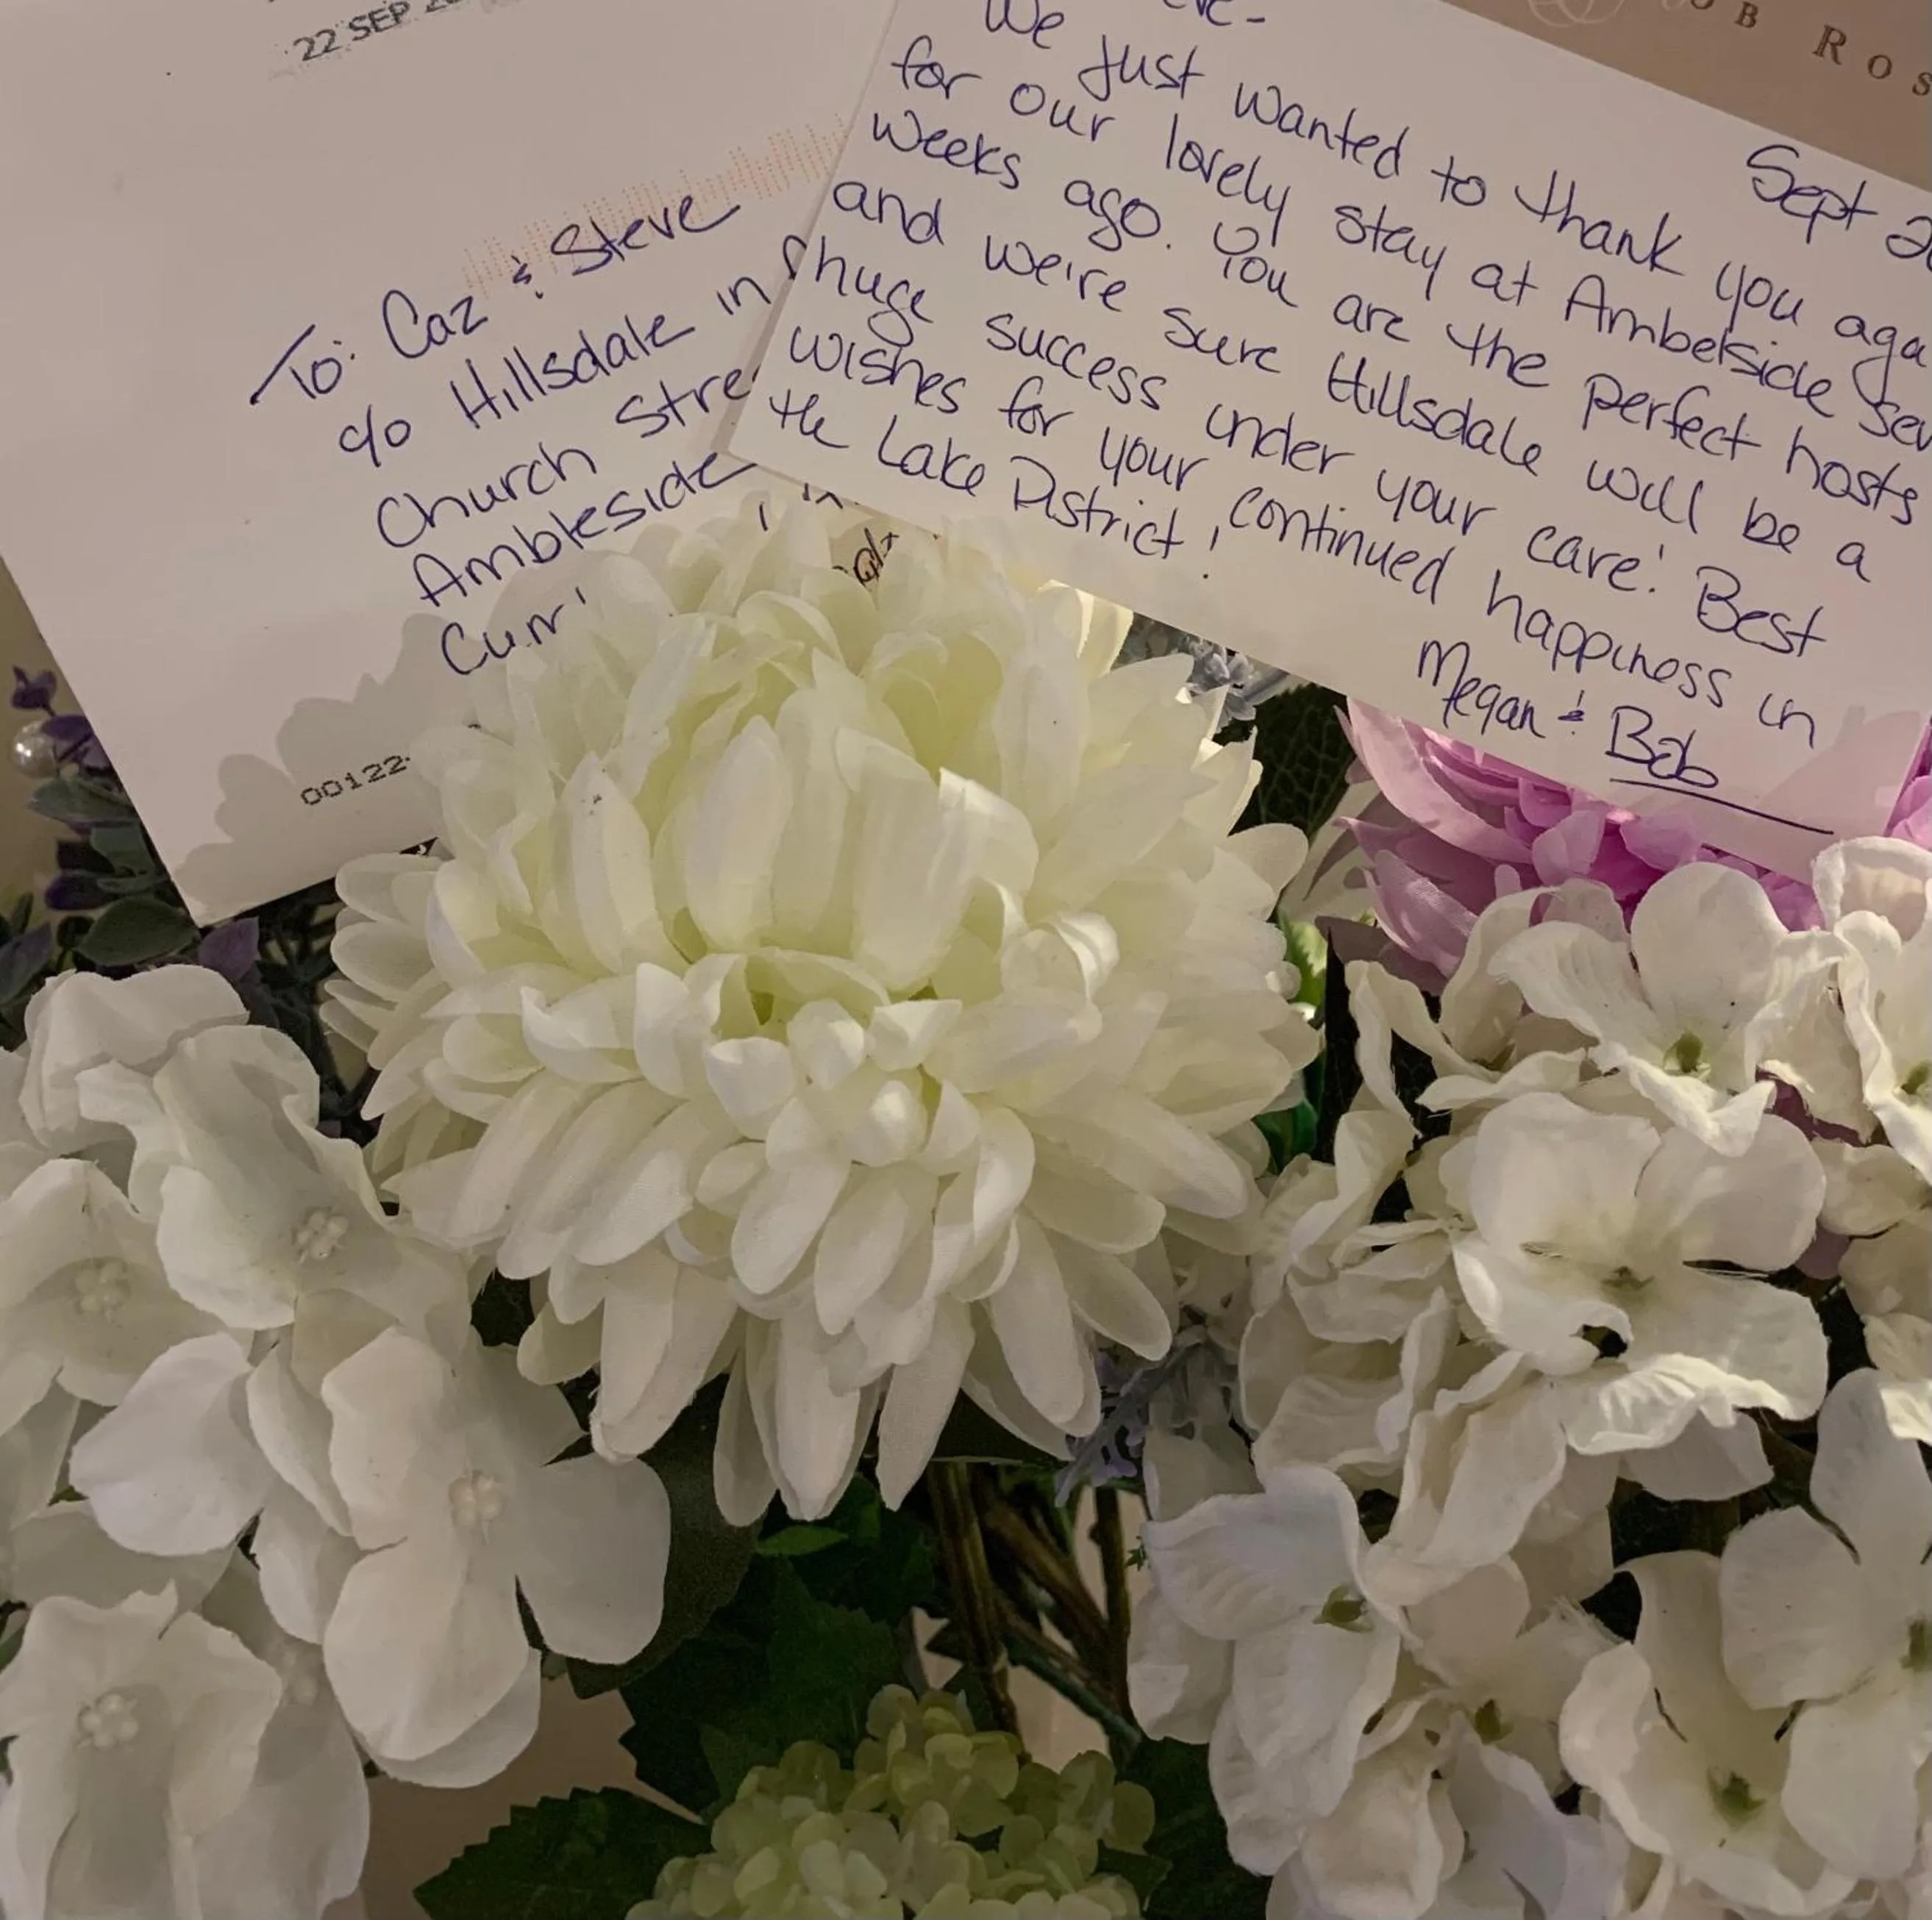 22 SEP
To: Caz & Steve
c/o Hillsdale in
Church Stre
Ambleside
Cum
00122
OB ROS
Sept 2
We just wanted to thank you aga
for our lovely stay at Ambelside sev
weeks ago. You are the perfect hosts
and we're sure Hillsdale will be a
huge success under your care! Best
wishes for your continued happiness in
the Lake District!
Megan & Bob